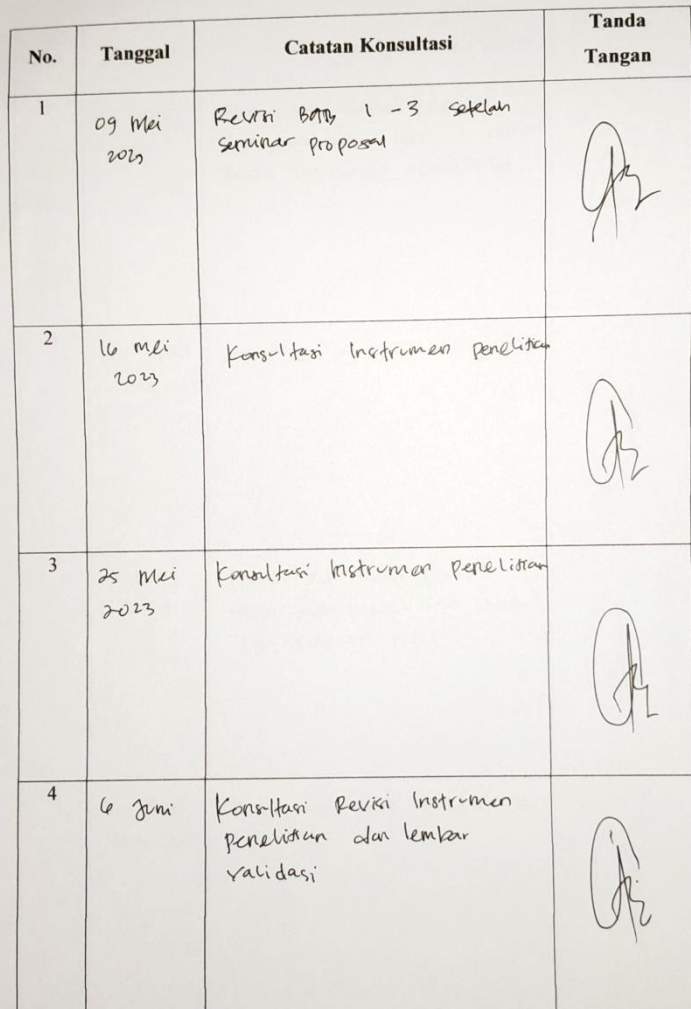 No. Tanggal Catatan Konsultasi Tanda
Tangan
1
09 Mei
2023
Revisi BAB 1 - 3 setelah
seminar proposal
2
16 Mei
2023
Konsultasi Instrumen penelitian
3
25 Mei
2023
Konsultasi Instrumen penelitian
4
6 Juni
Konsultasi Revisi Instrumen
penelitian dan lembar
validasi